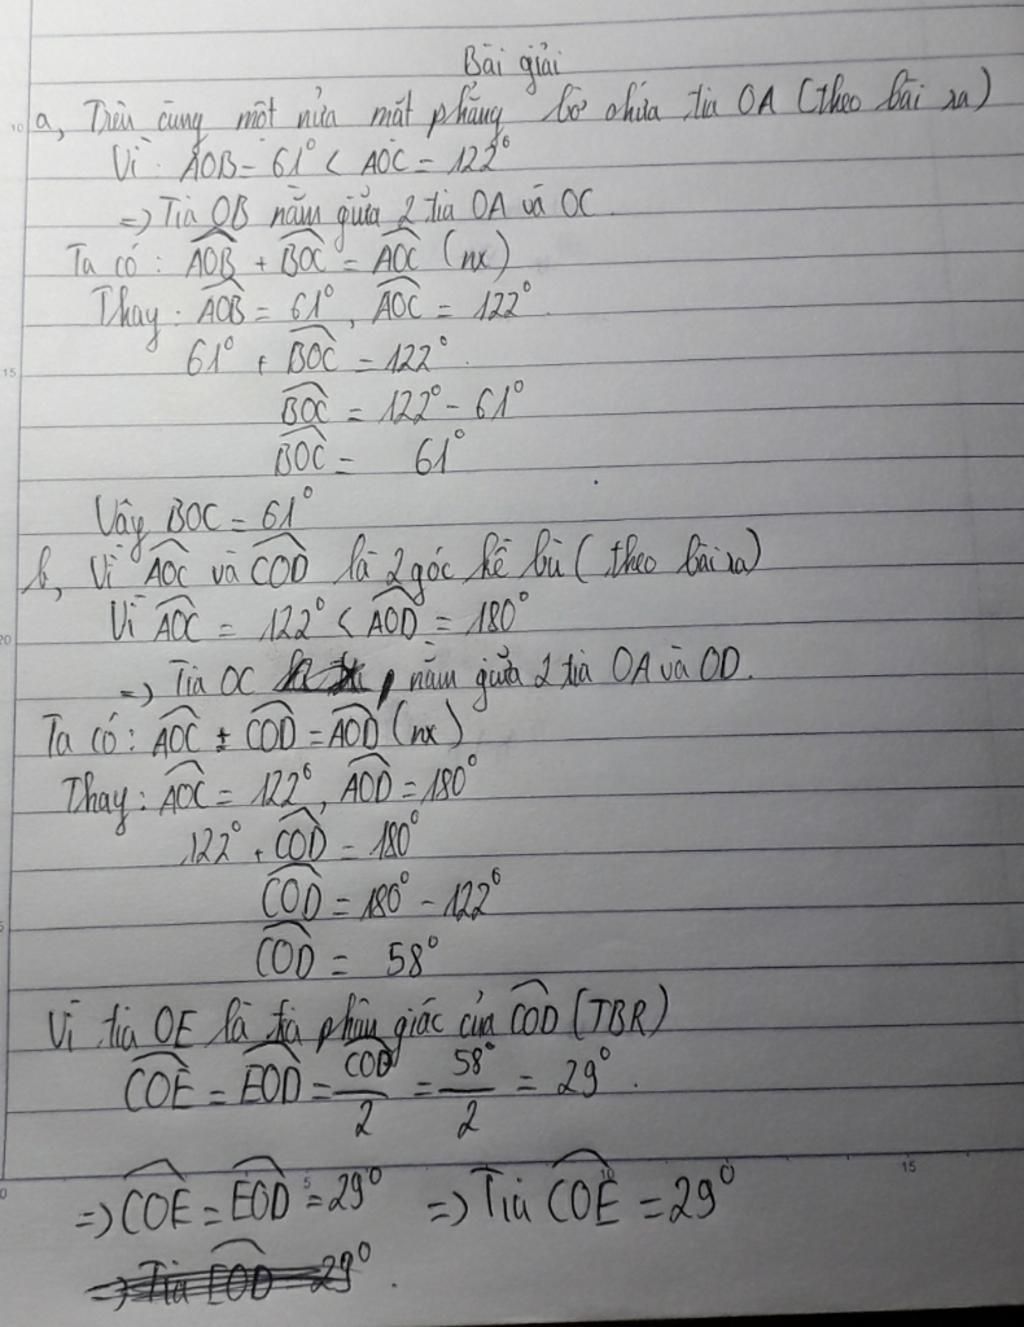 Bài giải
a, Trên cùng một nửa mặt phẳng bờ chứa tia OA (theo bài ra)
Vì: AOB = 61° < AOC = 122°
=> Tia OB nằm giữa 2 tia OA và OC.
Ta có: AOB + BOC = AOC (nx)
Thay: AOB = 61°, AOC = 122°.
61° + BOC = 122°.
BOC = 122° - 61°
BOC = 61°
Vậy BOC = 61°
b, Vì AOC và COD là 2 góc kề bù (theo bài ra)
Vì AOC = 122° < AOD = 180°
=> Tia OC nằm giữa 2 tia OA và OD.
Ta có: AOC + COD = AOD (nx)
Thay: AOC = 122°, AOD = 180°
122° + COD = 180°
COD = 180° - 122°
COD = 58°
Vì tia OE là tia phân giác của COD (TBR)
COE = EOD = COD/2 = 58°/2 = 29°.
=> COE = EOD = 29° => Tia COE = 29°
=> Tia EOD = 29°.